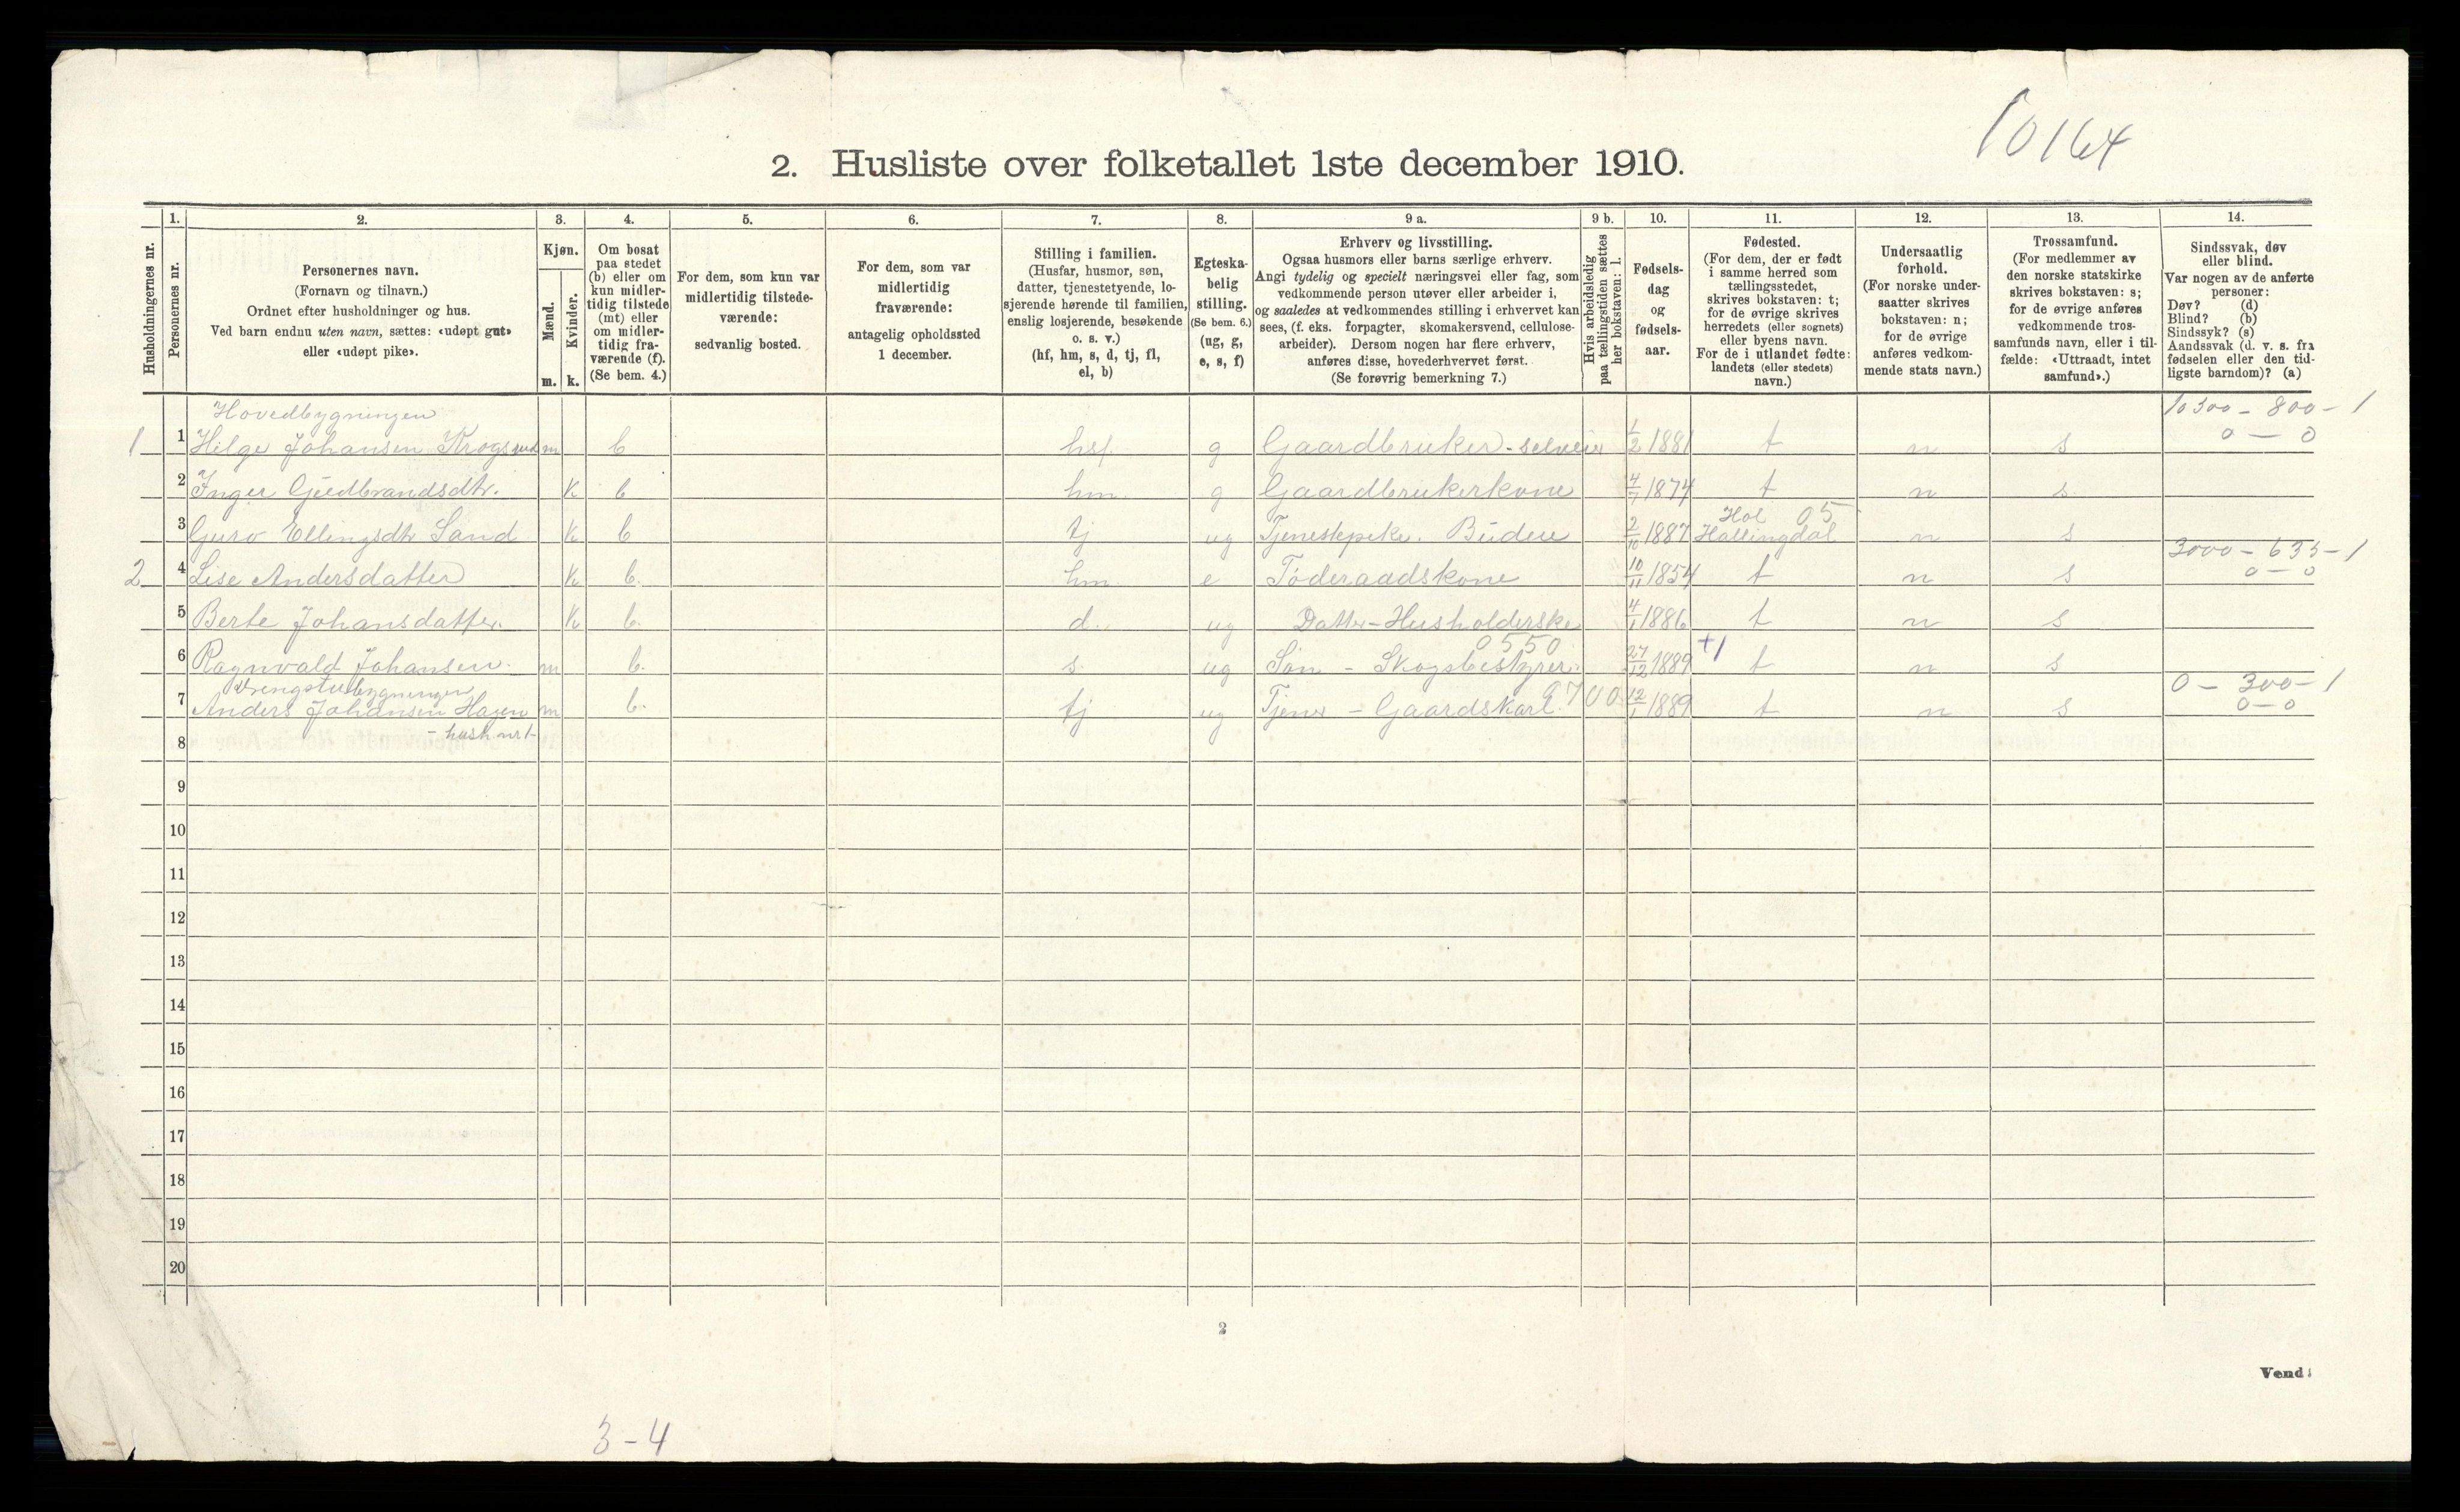 10164
2. Husliste over folketallet 1ste december 1910.
Husholdningernes nr.
1.
Personernes nr.
2.
Personernes navn.
(Fornavn og tilnavn.)
Ordnet efter husholdninger og hus.
Ved barn endnu uten navn, sættes: «udøpt gut»
eller «udøpt pike».
3.
Kjøn.
Mænd.
Kvinder.
m. k.
4.
Om bosat
paa stedet
(b) eller om
kun midler-
tidig tilstede
(mt) eller
om midler-
tidig fra-
værende (f).
(Se bem. 4.)
5.
For dem, som kun var
midlertidig tilstede-
værende:
sedvanlig bosted.
6.
For dem, som var
midlertidig
fraværende:
antagelig opholdssted
1 december.
7.
Stilling i familien.
(Husfar, husmor, søn,
datter, tjenestetyende, lo-
sjerende hørende til familien,
enslig losjerende, besøkende
o. s. v.)
(hf, hm, s, d, tj, fl,
el, b)
8.
Egteska-
belig
stilling.
(Se bem. 6.)
(ug, g,
e, s, f)
9 a.
Erhverv og livsstilling.
Ogsaa husmors eller barns særlige erhverv.
Angi tydelig og specielt næringsvei eller fag, som
vedkommende person utøver eller arbeider i,
og saaledes at vedkommendes stilling i erhvervet kan
sees, (f. eks. forpagter, skomakersvend, cellulose-
arbeider). Dersom nogen har flere erhverv,
anføres disse, hovederhvervet først.
(Se forøvrig bemerkning 7.)
9 b.
Hvis arbeidsledig
paa tællingstiden sættes
her bokstaven: l.
10.
Fødsels-
dag
og
fødsels-
aar.
11.
Fødested.
(For dem, der er født
i samme herred som
tællingsstedet,
skrives bokstaven: t;
for de øvrige skrives
herredets (eller sognets)
eller byens navn.
For de i utlandet fødte:
landets (eller stedets)
navn.)
12.
Undersaatlig
forhold.
(For norske under-
saatter skrives
bokstaven: n;
for de øvrige
anføres vedkom-
mende stats navn.)
13.
Trossamfund.
(For medlemmer av
den norske statskirke
skrives bokstaven: s;
for de øvrige anføres
vedkommende tros-
samfunds navn, eller i til-
fælde: «Uttraadt, intet
samfund».)
14.
Sindssvak, døv
eller blind.
Var nogen av de anførte
personer:
Døv? (d)
Blind? (b)
Sindssyk? (s)
Aandssvak (d. v. s. fra
fødselen eller den tid-
ligste barndom)? (a)
Hovedbygningen 10300 - 800 - 1
1 1 Helge Johansen Krogsrud m b hsf. g Gaardbruker - selveier 1/2 1881 t n s 0 - 0
2 Inger Gudbrandsdtr. k b hm. g Gaardbrukerkone 4/7 1874 t n s
Hol 05
3 Guro Ellingsdtr Sand k b tj ug Tjenestepike. Budeie 2/10 1887 Hallingdal n s
3000 - 635 - 1
2 4 Lise Andersdatter k b. hm. e Føderaadskone 10/11 1854 t n s 0 - 0
5 Berte Johansdatter. k b. d. ug Datter - Husholderske 4/1 1886 t n s
0550 +1
6 Ragnvald Johansen. m b. s. ug Søn - Skogsbestyrer. 27/12 1889 t n s
Drengstubygningen 9700 0 - 300 - 1
7 Anders Johansen Hagen m b. tj ug Tjener - Gaardskarl. 12/1 1889 t n s 0 - 0
8 - hush. nr 1 -
9
10
11
12
13
14
15
16
17
18
19
20
2
Vend!
3 - 4